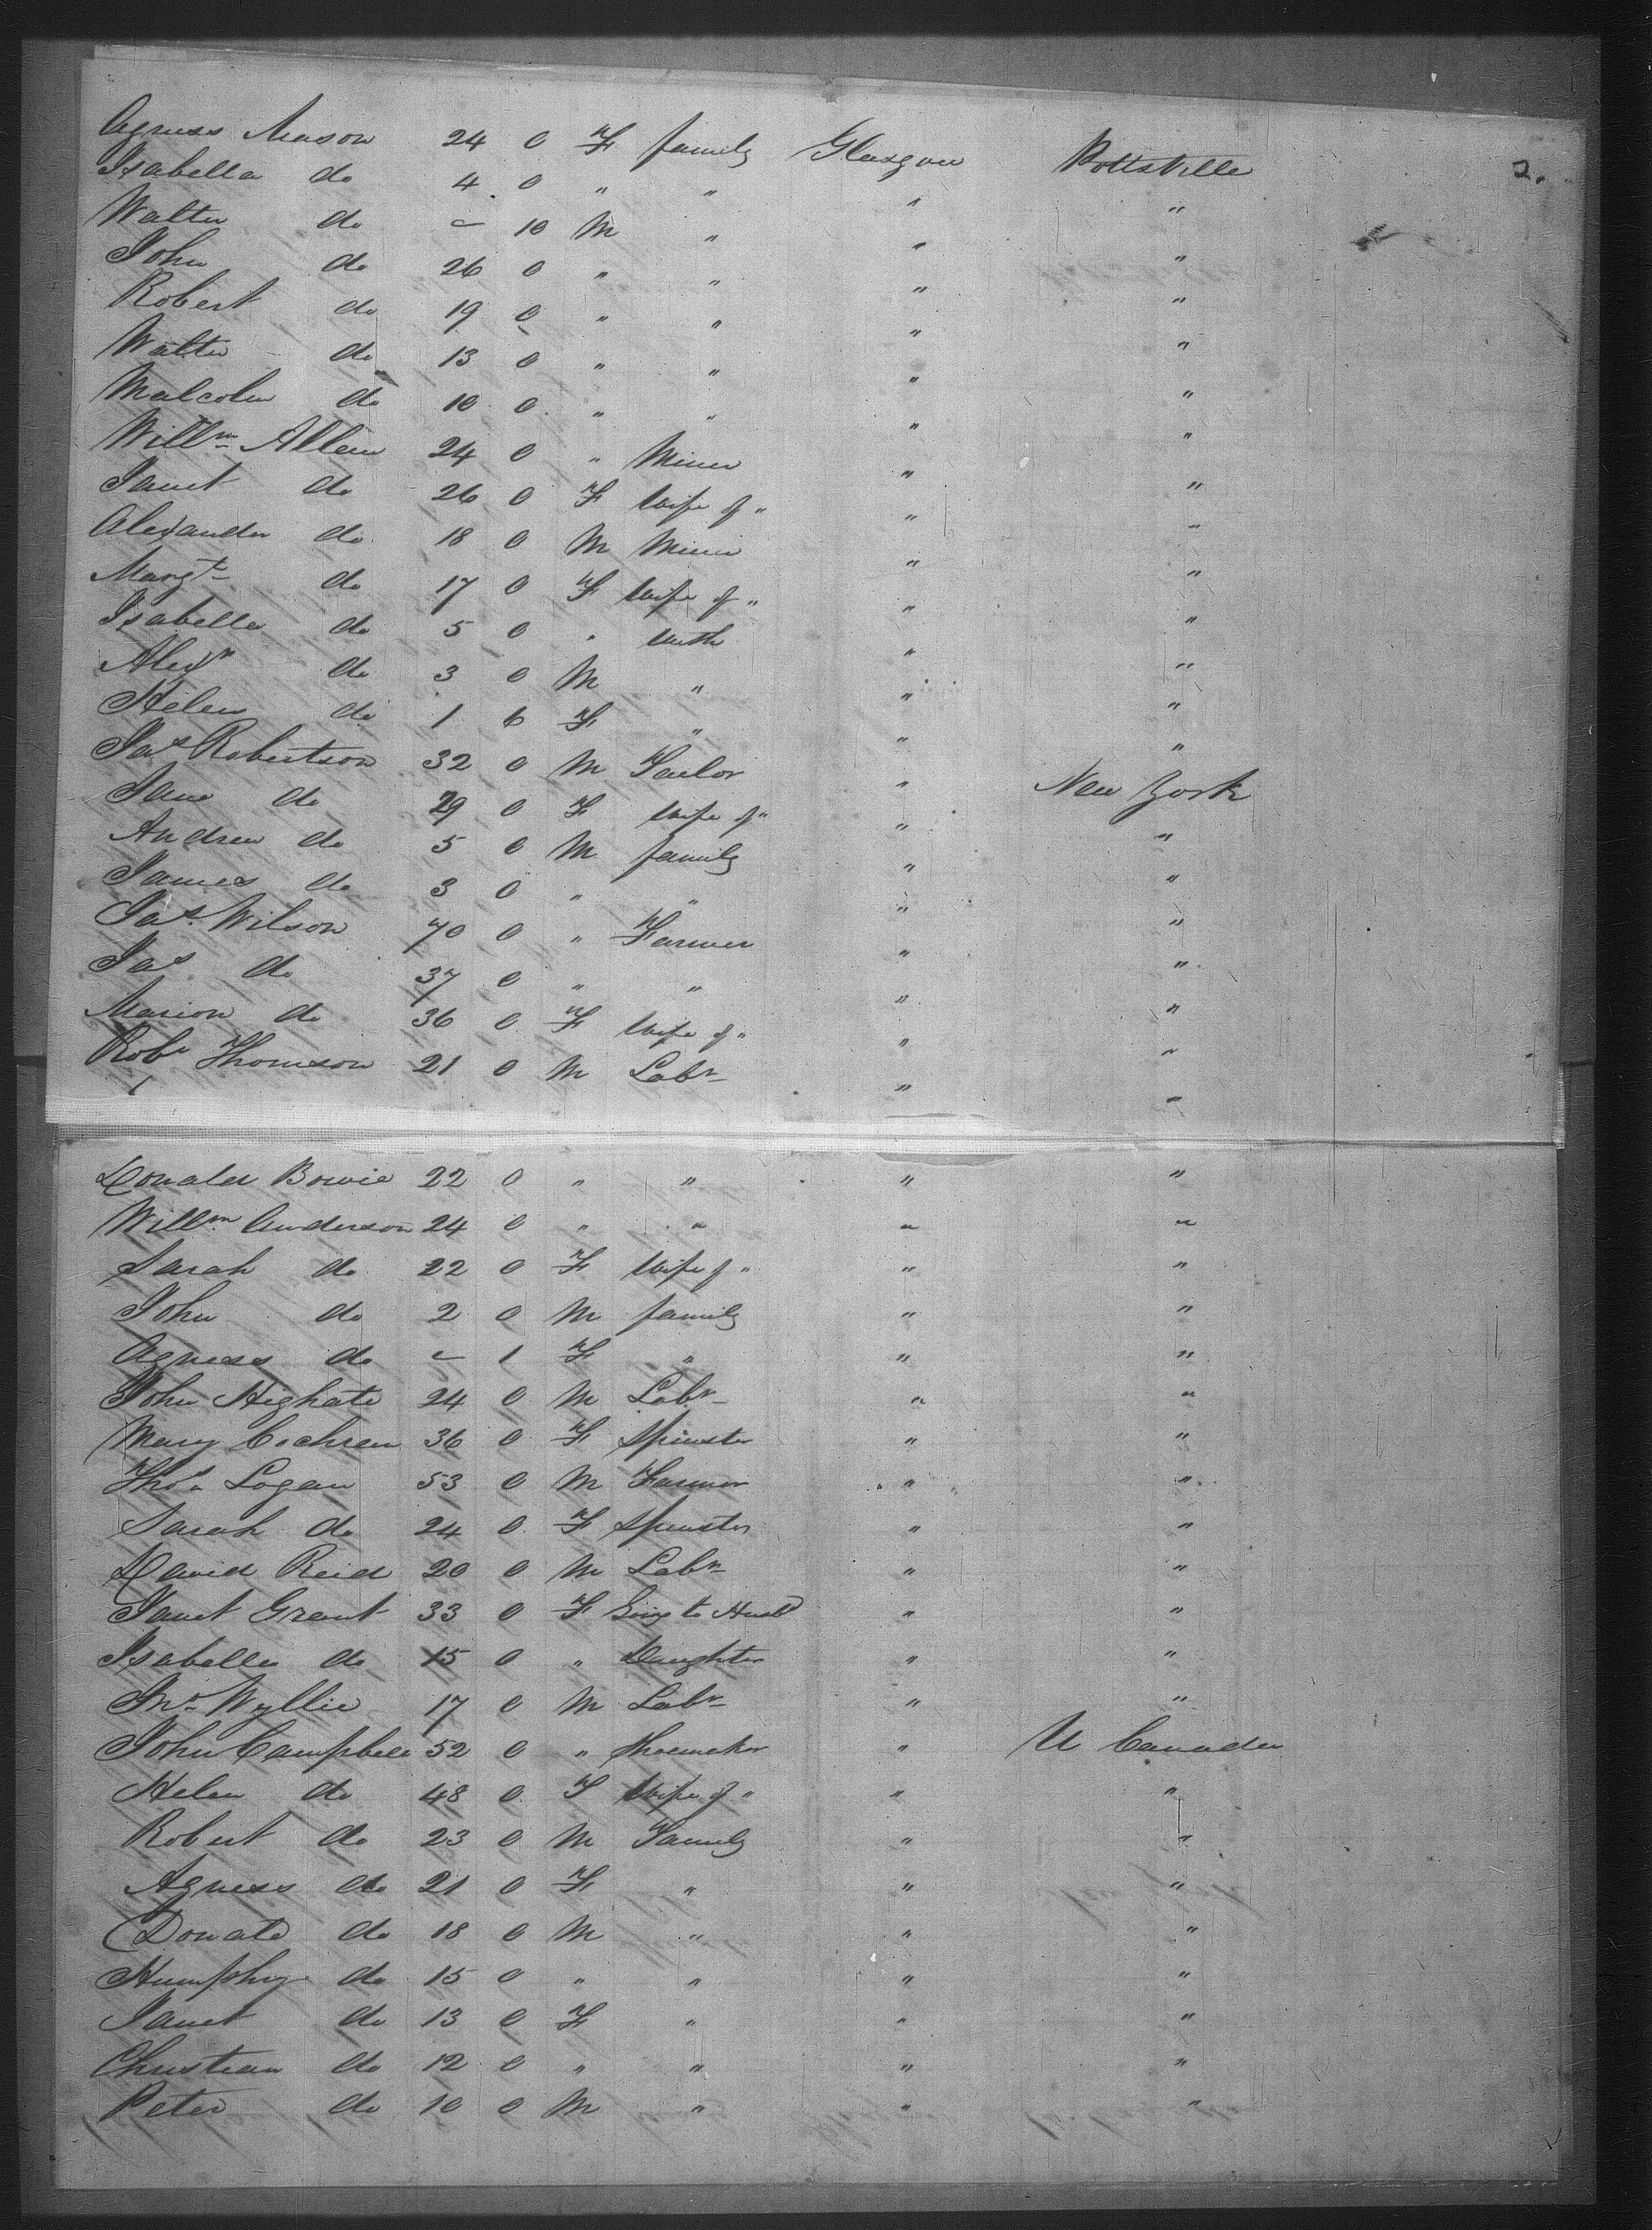 2.
Agness Mason 24 0 F family Glasgow Pottsville
Isabella do 4 0 " " " "
Walter do – 10 M " " "
John do 26 0 " " " "
Robert do 19 0 " " " "
Walter do 13 0 " " " "
Malcolm do 10 0 " " " "
Willm Allan 24 0 " Miner " "
Janet do 26 0 F Wife of " " "
Alexander do 18 0 M Miner " "
Margt do 17 0 F Wife of " " "
Isabella do 5 0 " with " "
Alexr do 3 0 M " " "
Helen do 1 6 F " " "
Jas Robertson 32 0 M Tailor " New York
Jane do 29 0 F Wife of " " "
Andrew do 5 0 M family " "
James do 3 0 " " " "
Jas. Wilson 70 0 " Farmer " "
Jas do 37 0 " " " "
Marion do 36 0 F Wife of " " "
Robt Thomson 21 0 M Labr " "
Donald Bowie 22 0 " " " "
Willm Anderson 24 0 " " " "
Sarah do 22 0 F Wife of " " "
John do 2 0 M family " "
Agness do – 1 F " " "
John Highate 24 0 M Labr " "
Mary Cochran 36 0 F Spinster " "
Thos Logan 53 0 M Farmer " "
Sarah do 24 0 F Spinster " "
David Reid 20 0 M Labr " "
Janet Grant 33 0 F Going to Husbd " "
Isabella do 15 0 " Daughter " "
Jno Wyllie 17 0 M Labr " "
John Campbell 52 0 " Shoemaker " U Canada
Helen do 48 0 F Wife of " " "
Robert do 23 0 M Family " "
Agness do 21 0 F " " "
Donald do 18 0 M " " "
Humphry do 15 0 " " " "
Janet do 13 0 F " " "
Christian do 12 0 " " " "
Peter do 10 0 M " " "